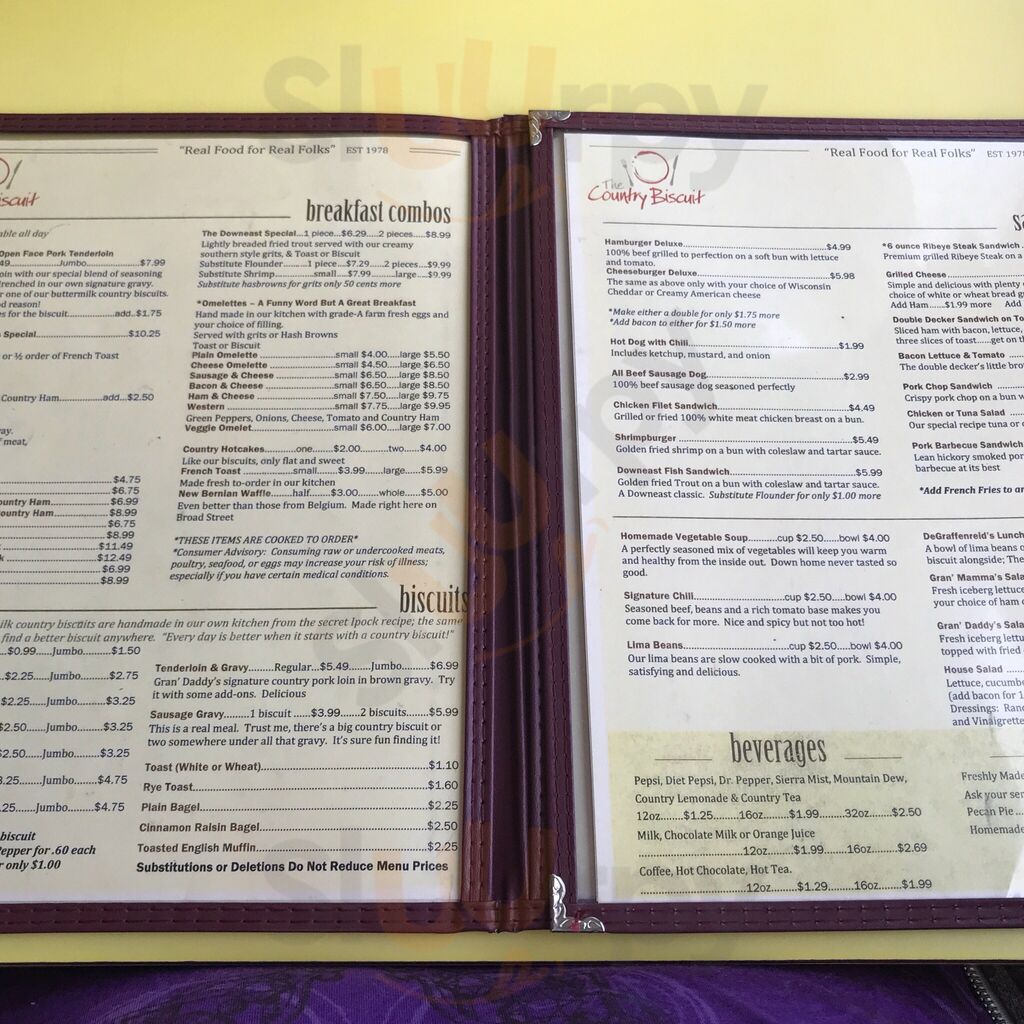 "Real Food for Real Folks" EST 1978
breakfast combos
able all day
Open Face Pork Tenderloin
Jumbo..................$7.99
oin with our special blend of seasoning
drenched in our own signature gravy.
r one of our buttermilk country biscuits.
d reason!
es for the biscuit..............add..$1.75
Special.................................$10.25
or ½ order of French Toast
Country Ham..............add...$2.50
meat,
$4.75
$6.75
ountry Ham................$6.99
ountry Ham................$8.99
$6.75
$8.99
$11.49
$12.49
$6.99
$8.99
The Downeast Special...1 piece...$6.29.....2 pieces.....$8.99
Lightly breaded fried trout served with our creamy
southern style grits, & Toast or Biscuit
Substitute Flounder.........1 piece...$7.29.....2 pieces...$9.99
Substitute Shrimp...........small....$7.99..........large....$9.99
Substitute hasbrowns for grits only 50 cents more
*Omelettes – A Funny Word But A Great Breakfast
Hand made in our kitchen with grade-A farm fresh eggs and
your choice of filling.
Served with grits or Hash Browns
Toast or Biscuit
Plain Omelette ........................small $4.00.....large $5.50
Cheese Omelette .....................small $4.50.....large $6.50
Sausage & Cheese ...................small $6.50.....large $8.50
Bacon & Cheese ......................small $6.50.....large $8.50
Ham & Cheese ........................small $7.50.....large $9.75
Western ..................................small $7.75.....large $9.95
Green Peppers, Onions, Cheese, Tomato and Country Ham
Veggie Omelet.........................small $6.00......large $7.00
Country Hotcakes..........one........$2.00........two....$4.00
Like our biscuits, only flat and sweet
French Toast ..............small.......$3.99......large.....$5.99
Made fresh to-order in our kitchen
New Bernian Waffle.....half......$3.00......whole.....$5.00
Even better than those from Belgium. Made right here on
Broad Street
*THESE ITEMS ARE COOKED TO ORDER*
*Consumer Advisory: Consuming raw or undercooked meats,
poultry, seafood, or eggs may increase your risk of illness;
especially if you have certain medical conditions.
biscuits
ilk country biscuits are handmade in our own kitchen from the secret Ipock recipe; the same
find a better biscuit anywhere. "Every day is better when it starts with a country biscuit!"
$0.99....Jumbo....$1.50
$2.25.....Jumbo.....$2.75
$2.25.....Jumbo.....$3.25
$2.50.....Jumbo.....$3.25
$2.50.....Jumbo.....$3.25
3.25.....Jumbo.....$4.75
.25.....Jumbo.....$4.75
biscuit
Pepper for .60 each
r only $1.00
Tenderloin & Gravy........Regular...$5.49.......Jumbo.......$6.99
Gran' Daddy's signature country pork loin in brown gravy. Try
it with some add-ons. Delicious
Sausage Gravy.........1 biscuit ......$3.99......2 biscuits.....$5.99
This is a real meal. Trust me, there's a big country biscuit or
two somewhere under all that gravy. It's sure fun finding it!
Toast (White or Wheat)...........................................$1.10
Rye Toast..................................................................$1.60
Plain Bagel...............................................................$2.25
Cinnamon Raisin Bagel............................................$2.50
Toasted English Muffin............................................$2.25
Substitutions or Deletions Do Not Reduce Menu Prices
"Real Food for Real Folks" EST 1978
The
Country Biscuit
Hamburger Deluxe.......................................$4.99
100% beef grilled to perfection on a soft bun with lettuce
and tomato.
Cheeseburger Deluxe.....................................$5.98
The same as above only with your choice of Wisconsin
Cheddar or Creamy American cheese
*Make either a double for only $1.75 more
*Add bacon to either for $1.50 more
Hot Dog with Chili............................................$1.99
Includes ketchup, mustard, and onion
All Beef Sausage Dog.......................................$2.99
100% beef sausage dog seasoned perfectly
Chicken Filet Sandwich.....................................$4.49
Grilled or fried 100% white meat chicken breast on a bun.
Shrimpburger ...................................................$5.49
Golden fried shrimp on a bun with coleslaw and tartar sauce.
Downeast Fish Sandwich...................................$5.99
Golden fried Trout on a bun with coleslaw and tartar sauce.
A Downeast classic. Substitute Flounder for only $1.00 more
*6 ounce Ribeye Steak Sandwich
Premium grilled Ribeye Steak on a
Grilled Cheese
Simple and delicious with plenty
choice of white or wheat bread
Add Ham......$1.99 more Add
Double Decker Sandwich on To
Sliced ham with bacon, lettuce,
three slices of toast......get on th
Bacon Lettuce & Tomato
The double decker's little bro
Pork Chop Sandwich
Crispy pork chop on a bun w
Chicken or Tuna Salad
Our special recipe tuna or
Pork Barbecue Sandwich
Lean hickory smoked por
barbecue at its best
*Add French Fries to an
Homemade Vegetable Soup.......cup $2.50.....bowl $4.00
A perfectly seasoned mix of vegetables will keep you warm
and healthy from the inside out. Down home never tasted so
good.
Signature Chili........................cup $2.50....bowl $4.00
Seasoned beef, beans and a rich tomato base makes you
come back for more. Nice and spicy but not too hot!
Lima Beans..............................cup $2.50.....bowl $4.00
Our lima beans are slow cooked with a bit of pork. Simple,
satisfying and delicious.
DeGraffenreid's Lunch
A bowl of lima beans
biscuit alongside; The
Gran' Mamma's Sala
Fresh iceberg lettuce
your choice of ham
Gran' Daddy's Sala
Fresh iceberg lettu
topped with fried
House Salad
Lettuce, cucumbe
(add bacon for 1
Dressings: Ran
and Vinaigrette
beverages
Pepsi, Diet Pepsi, Dr. Pepper, Sierra Mist, Mountain Dew,
Country Lemonade & Country Tea
12oz......$1.25.......16oz.......$1.99........32oz.......$2.50
Milk, Chocolate Milk or Orange Juice
12oz........$1.99.......16oz.......$2.69
Coffee, Hot Chocolate, Hot Tea.
12oz.......$1.29........16oz......$1.99
Freshly Made
Ask your ser
Pecan Pie
Homemade
Slurrpy